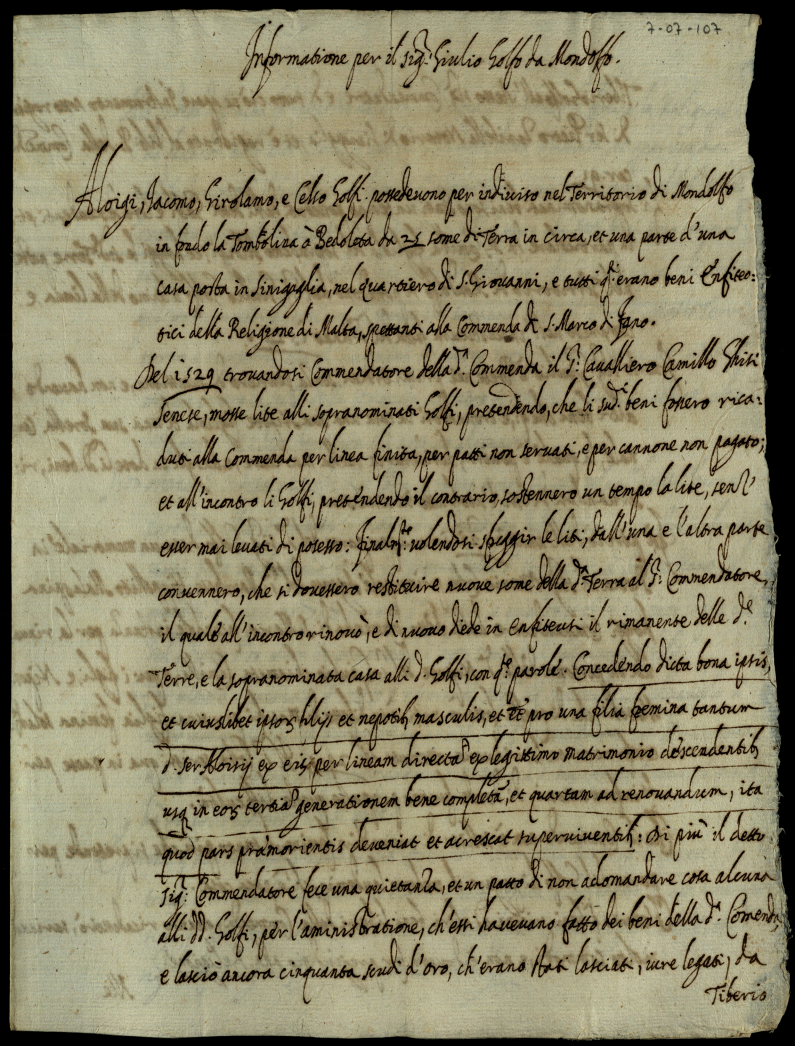 7-07-107
Informatione per il sig.r Giulio Golfo da Mondolfo.
Aloigi, Iacomo, Girolamo, e Celso Golfi possedevono per indiviso nel Territorio di Mondolfo
in fondo la Tombolina ò Bedoleta da 25 some di Terra in circa, et una parte d'una
casa posta in Sinigaglia, nel quartiero di S. Giovanni, e tutti q.i erano beni Enfiteo=
tici della Religione di Malta, spettanti alla Commenda di S. Marco di Fano.
Del 1529 trovandosi Commendatore della d.a Commenda il S.r Cavalliero Camillo Ghisi
Sencse, mosse lite alli sopranominati Golfi, pretendendo, che li sud.i beni fossero rica=
duti alla Commenda per linea finita, per patti non servati, e per cannone non pagato;
et all'incontro li Golfi, pretendendo il contrario, sostennero un tempo la lite, senz'
esser mai levati di posesso: Finalm.te volendosi sfuggir le liti, dall'una e l'altra parte
convennero, che si dovessero restituire nuove some della d.a Terra al S.r Commendatore,
il quale all'incontro rinovò, e di nuovo diede in Enfiteusi il rimanente delle d.e
Terre, e la sopranominata casa alli d. Golfi, con q.e parole. Concedendo dicta bona ipsis,
et cuiuslibet ipsoꝝ filijs et nepotib masculis, et et pro una filia fœmina tantum
d. ser Aloisij ex eis per lineam directā ex legittimo matrimonio descendentib
usq in eoꝝ tertiā generationem bene completā, et quartam ad renovandum, ita
quod pars præmorientis deveniat et acrescat superviventib: Di più il detto
sig.r Commendatore fece una quietanza, et un patto di non adomandare cosa alcuna
alli dd. Golfi, per l'aministratione, ch'essi havevano fatto dei beni della d.a Comenda,
e lasciò ancora cinquanta scudi d'oro, ch'erano stati lasciati, iure legati, da
Tiberio